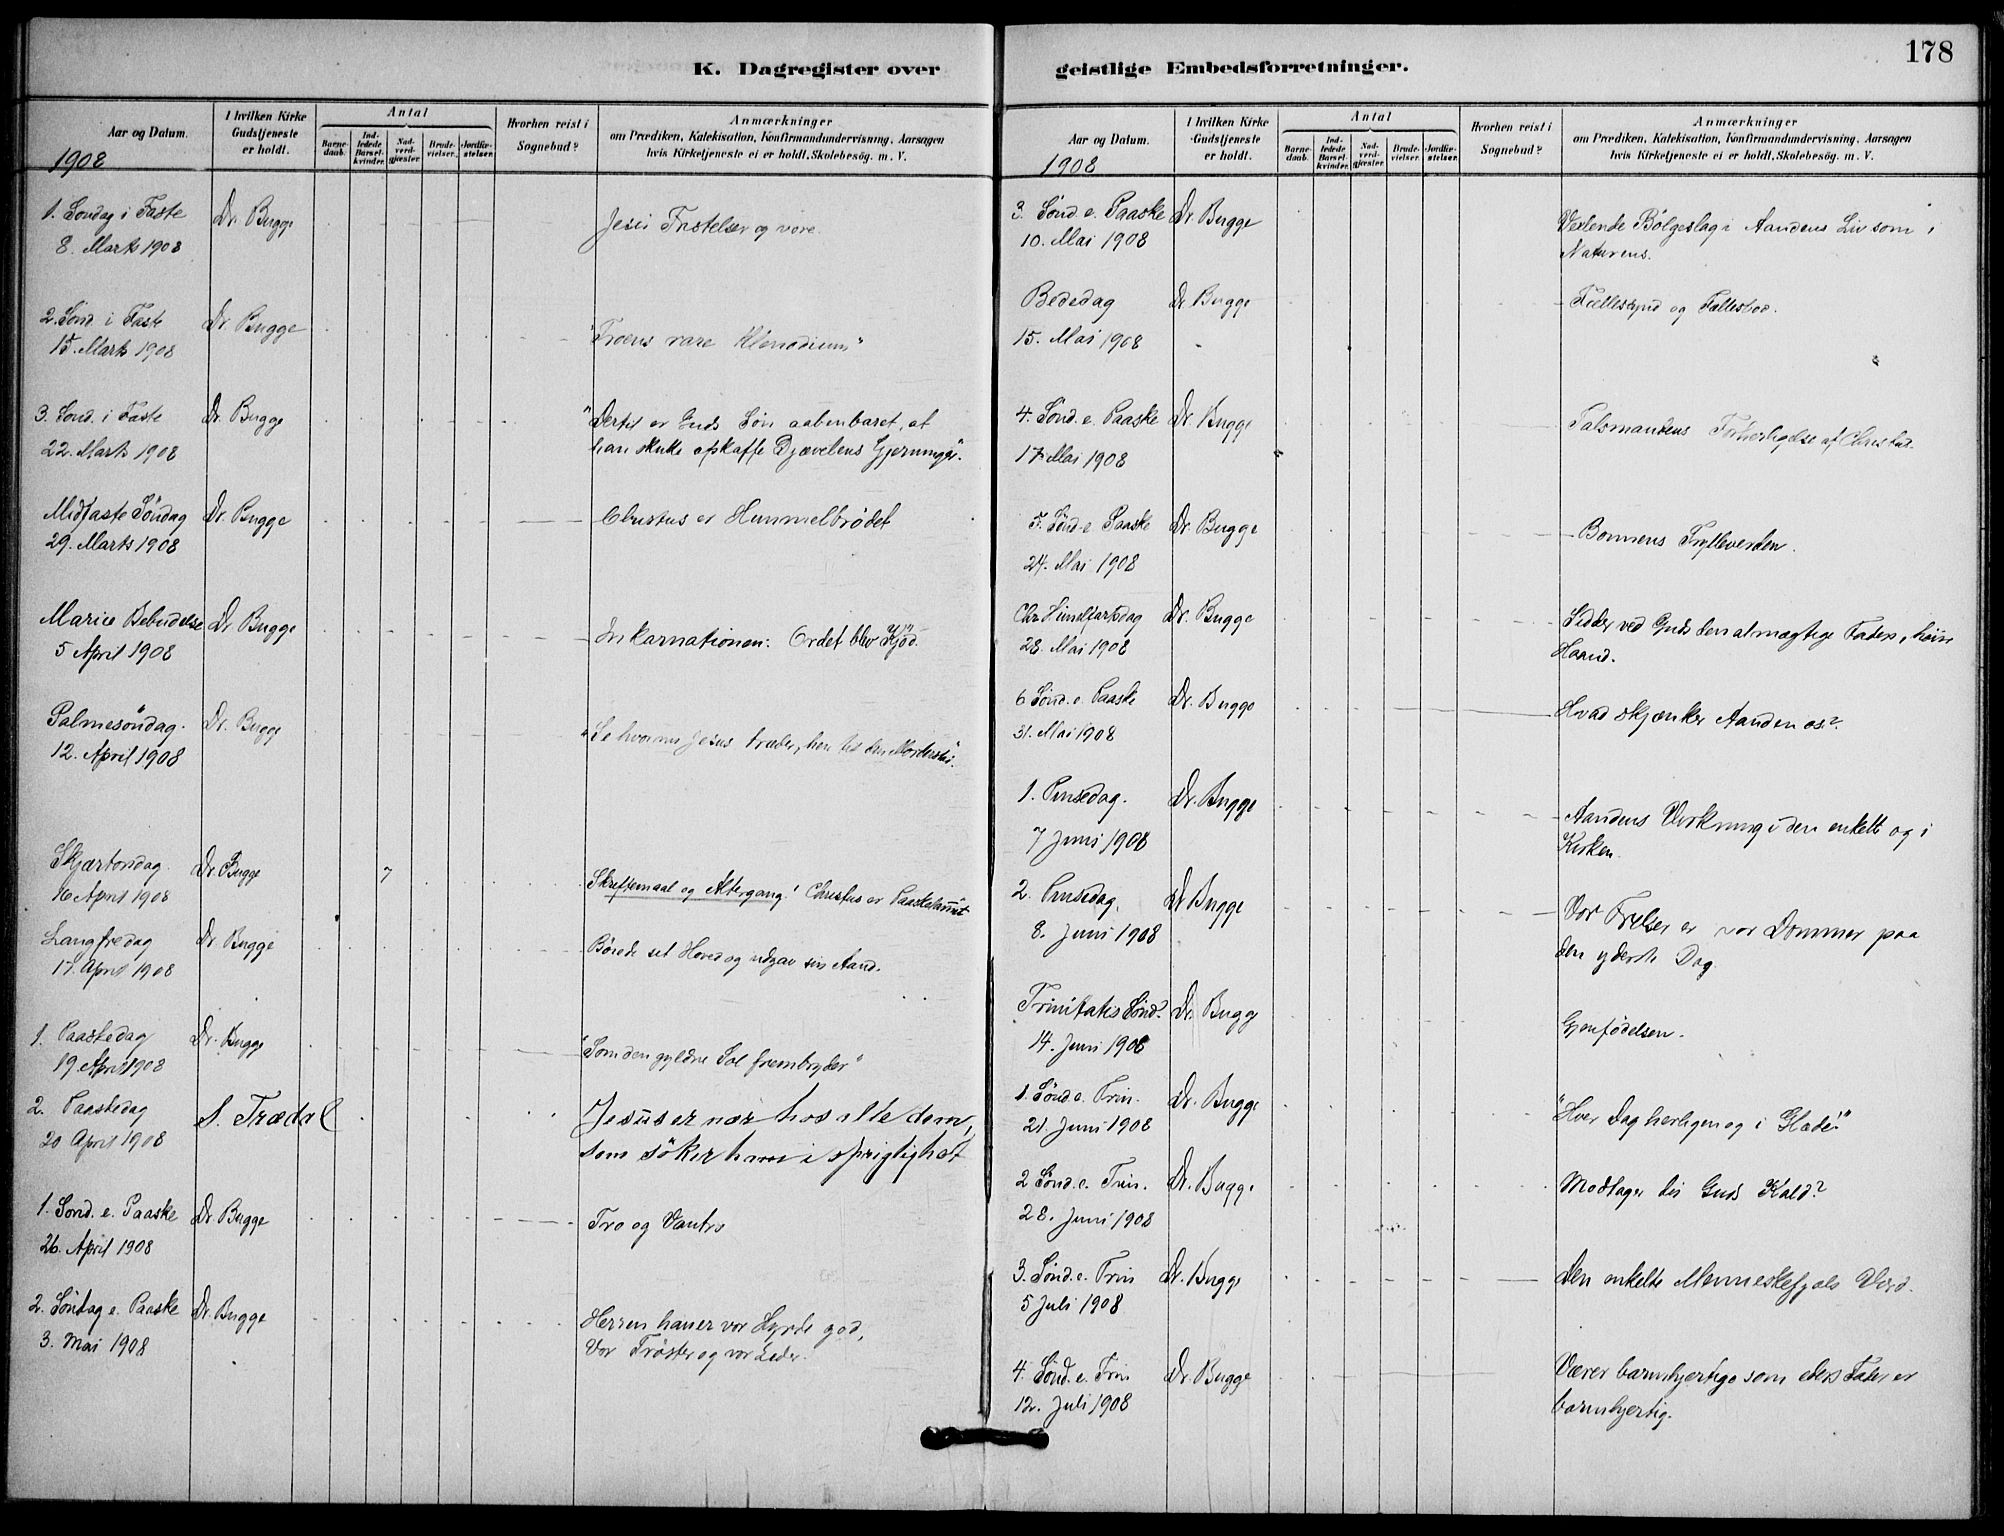 178
K. Dagregister over
geistlige Embedsforretninger.
Aar og Datum.
I hvilken Kirke Gudstjeneste er holdt.
Antal
Barne-daab.
Ind-ledede Barsel-kvinder.
Nad-verd-gjæster.
Brude-vielser.
Jordfæ-stelser.
Hvorhen reist i Sognebud?
Anmærkninger
om Prædiken, Katekisation, Konfirmandundervisning, Aarsagen
hvis Kirketjeneste ei er holdt, Skolebesög. m. V.
1908
1. Søndag i Faste Dr. Bugge
8. Marts 1908
Jesu Fristelser og vore.
2. Sønd. i Faste Dr. Bugge
15. Marts 1908
"Troens rare Klenodium"
3. Sønd. i Faste Dr. Bugge
22. Marts 1908
"Dertil er Guds Søn aabenbaret, at
han skulle afskaffe Djævelens Gjerninger".
Midfaste Søndag Dr. Bugge
29. Marts 1908
Christus er Himmelbrødet
Mariæ Bebudelse Dr. Bugge
5 April 1908
Inkarnationen: Ordet blev Kjød.
Palmesøndag. Dr. Bugge
12. April 1908
"Se hvornu Jesus træder, hen til den Mørderstei".
Skjærtorsdag Dr. Bugge 7
16 April 1908
Skriftemaal og Altergang! Christus er Paaskelammet
Langfredag Dr. Bugge
17. April 1908
Bøiede sit Hoved og udgav sin Aand.
1. Paaskedag Dr. Bugge
19. April 1908
"Som den gyldne Sol frembryder"
2. Paaskedag S. Trædal
20 April 1908
Jesus er nær hos alle dem,
som søker ham i oprigtighet
1. Sønd. e. Paaske Dr. Bugge
26. April 1908
Tro og Vantro
2. Søndag e. Paaske Dr. Bugge
3. Mai 1908
Herren han er vor Hyrde god,
Vor Trøster og vor Leder.
Aar og Datum.
I hvilken Kirke Gudstjeneste er holdt.
Antal
Barne-daab.
Ind-ledede Barsel-kvinder.
Nad-verd-gjæster.
Brude-vielser.
Jordfæ-stelser.
Hvorhen reist i Sognebud?
Anmærkninger
om Prædiken, Katekisation, Konfirmandundervisning, Aarsagen
hvis Kirketjeneste ei er holdt, Skolebesög. m. V.
1908
3. Sønd. e. Paaske Dr. Bugge
10. Mai 1908
Vexlende Bølgeslag i Aandens Liv som i
Naturens.
Bededag Dr. Bugge
15. Mai 1908
Fællessynd og Fællesbod.
4. Sønd. e. Paaske Dr. Bugge
17. Mai 1908
Talsmandens Forherligelse af Christus.
5. Sønd. e. Paaske Dr. Bugge
24. Mai 1908
Bønnens Trylleverden.
Chr. Himelfartsdag Dr. Bugge
28. Mai 1908
Sidder ved Guds den almægtige Faders høire
Haand.
6 Sønd. e. Paaske Dr. Bugge
31. Mai 1908
Hvad skjænker Aanden os?
1. Pinsedag. Dr. Bugge
7 Juni 1908
Aandens Virkning i den enkelte og i
Kirken.
2. Pinsedag. Dr Bugge
8. Juni 1908
Vor Frelser er vor Dommer paa
den yderste Dag.
Trinitatis Sønd. Dr. Bugge
14. Juni 1908
Gjenfødelsen.
1. Sønd. e. Trin. Dr. Bugge
21. Juni 1908
"Hver Dag herligen og i Glæde!"
2 Sønd. e. Trin. Dr. Bugge
28. Juni 1908
Modtager du Guds Kald?
3. Sønd. e. Trin Dr. Bugge
5 Juli 1908
Den enkelte Menneskesjæls Værd.
4. Sønd. e. Trin Dr. Bugge
12. Juli 1908
Værer barmhjertige som eders Fader er
barmhjertig.